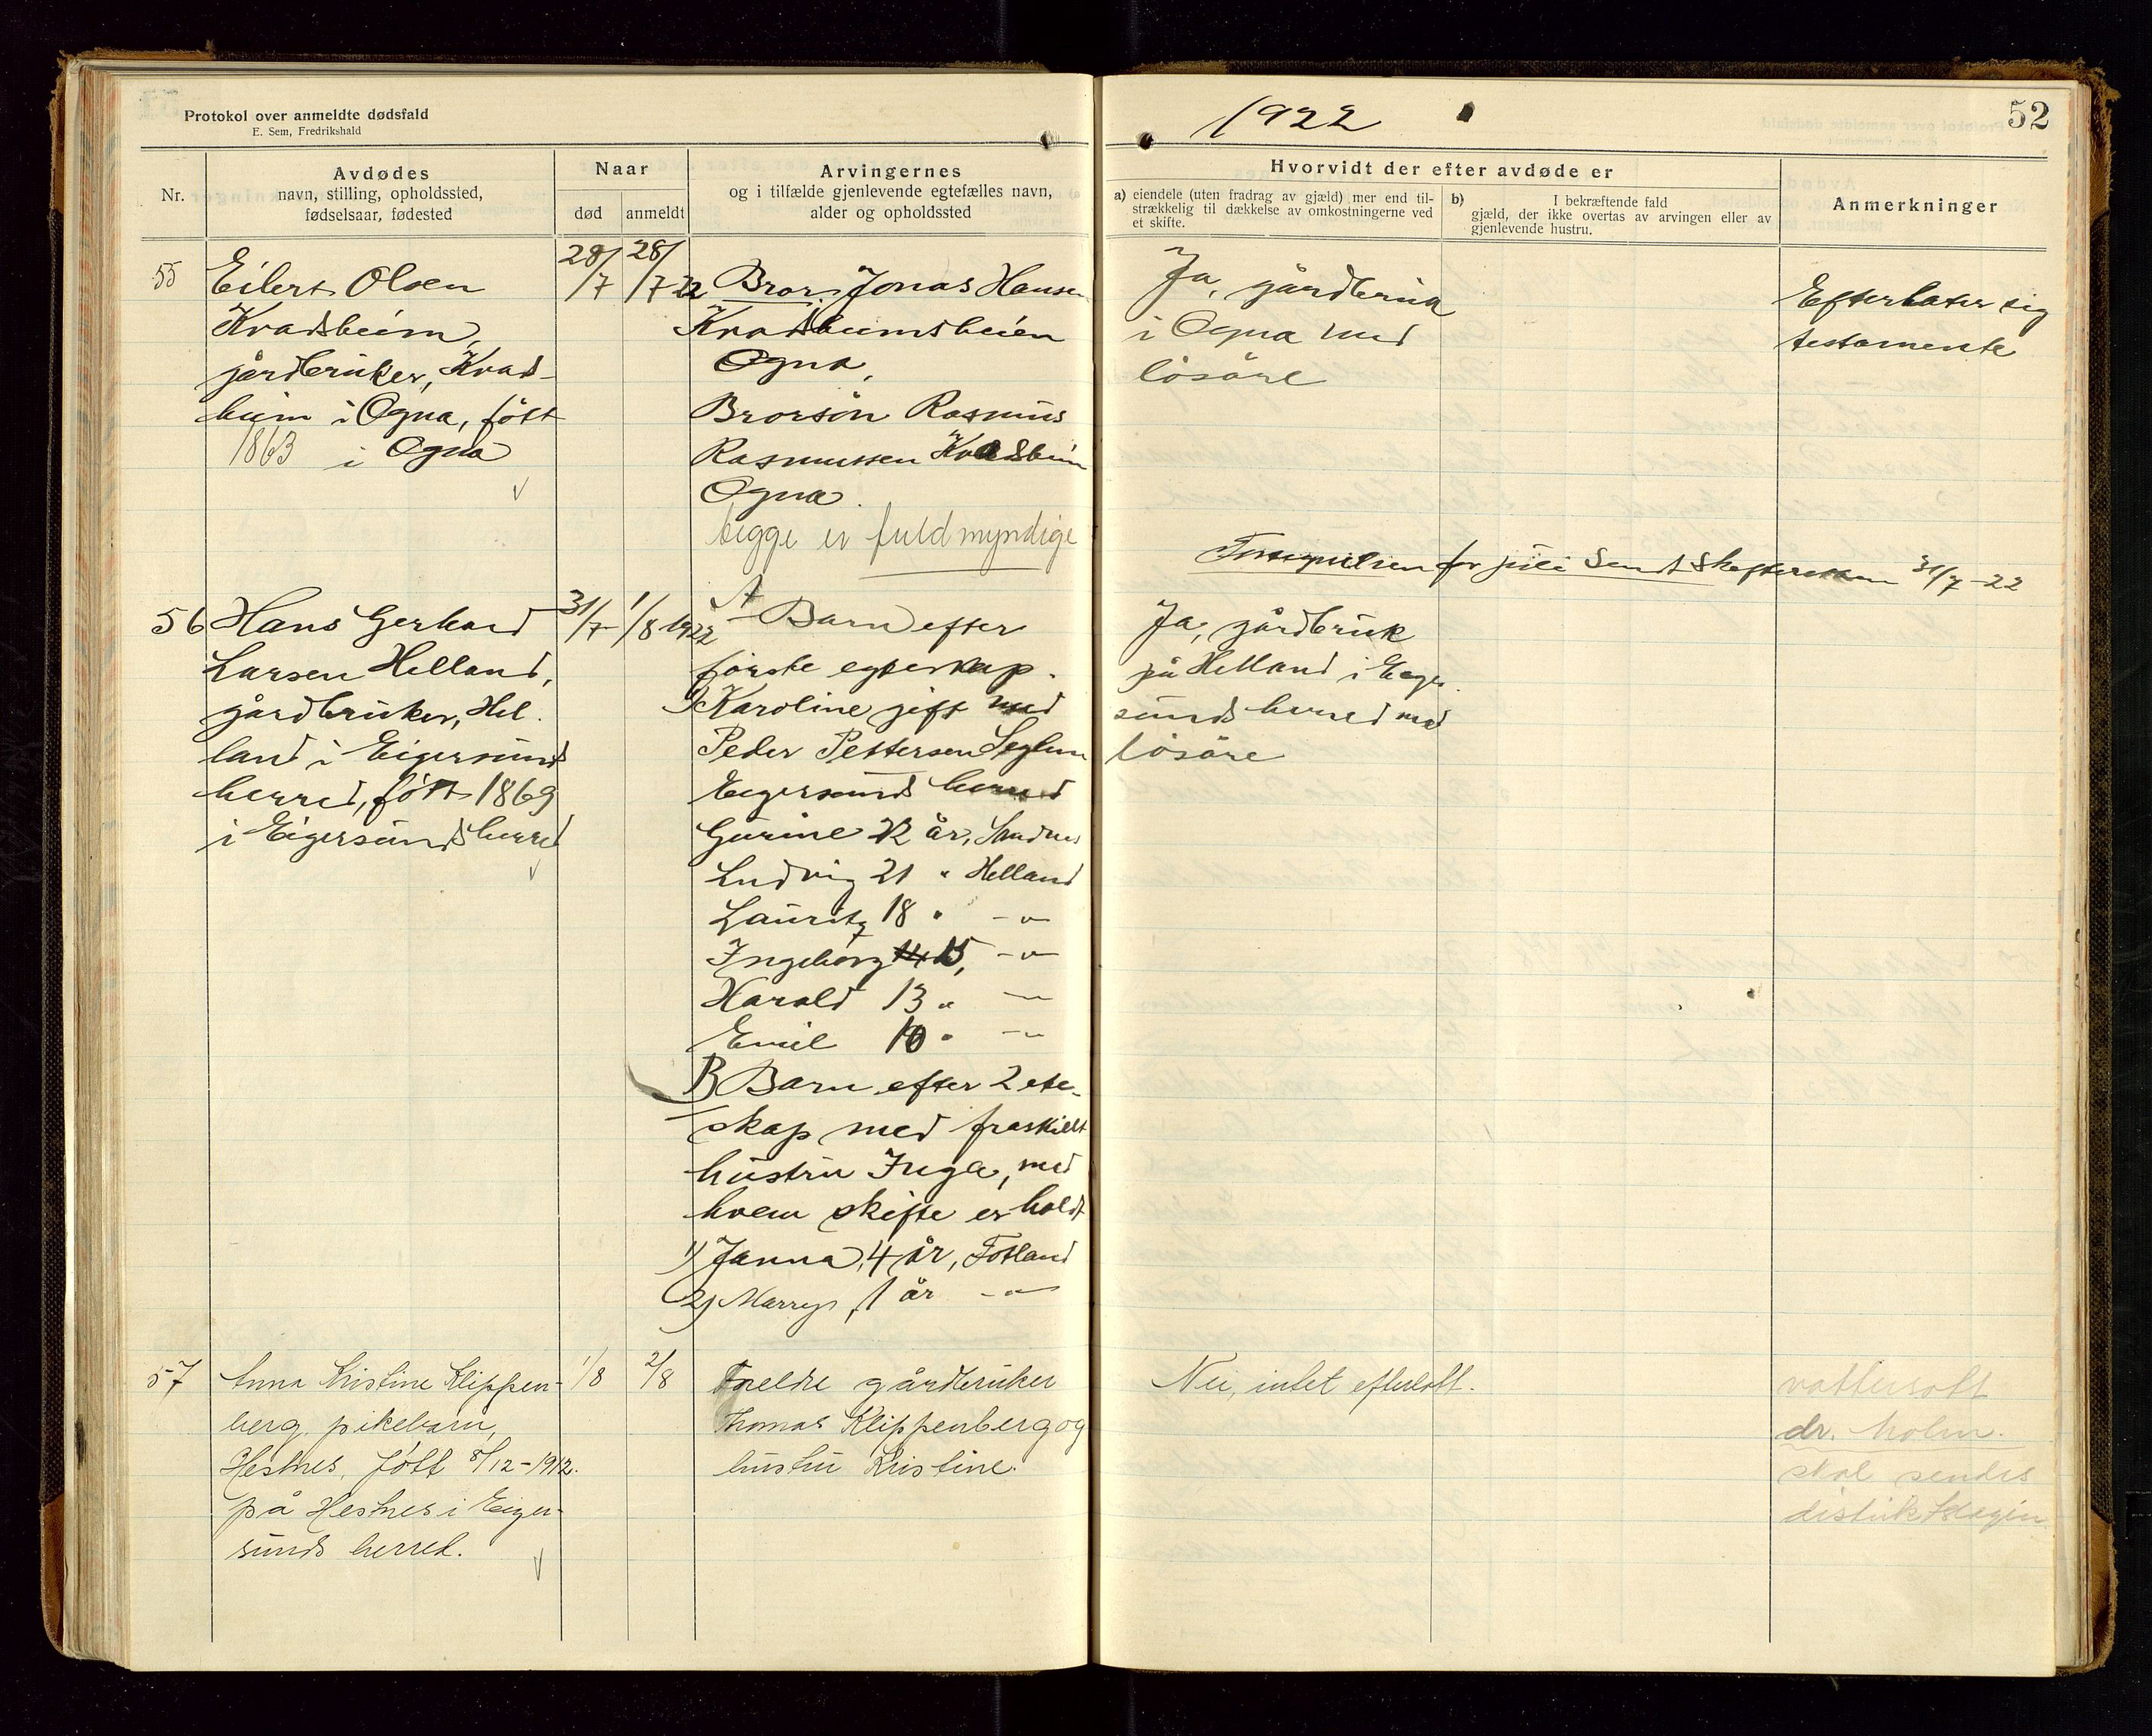 Protokol over anmeldte dødsfald
E. Sem, Fredrikshald
1922
52
Nr.
Avdødes
navn, stilling, opholdssted,
fødselsaar, fødested
Naar
død
anmeldt
Arvingernes
og i tilfælde gjenlevende egtefælles navn,
alder og opholdssted
Hvorvidt der efter avdøde er
a) eiendele (uten fradrag av gjæld) mer end til-
strækkelig til dækkelse av omkostningerne ved
et skifte.
b) I bekræftende fald
gjæld, der ikke overtas av arvingen eller av
gjenlevende hustru.
Anmerkninger
55
Eilert Olsen
Kvadsheim,
gårdbruker, Kvads-
heim i Ogna, født
1863 i Ogna
28/7
28/7 22
Bror Jonas Hansen
Kvadsheimsheien
Ogna,
Brorsön Rasmus
Rasmussen Kvadsheim
Ogna.
begge er fuldmyndige
Ja, gårdbruk
i Ogna med
lösöre
Efterlater sig
testamente
for juli sendt 31/7-22
56
Hans Gerhard
Larsen Helland,
gårdbruker, Hel-
land i Eigersunds
herred, født 1869
i Eigersunds herred
31/7
1/8 1922
A Barn efter
første egteskap.
1) Karoline gift med
Peder Pettersen Seglem
Eigersunds herred
Gurine 22 år, Sandnes
Ludvig 21 " Helland
Lauritz 18 " -"-
Ingeborg 14 15, -"-
Harald 13 " -"-
Emil 10 " -"-
B Barn efter 2 ekte-
skap med fraskilt
hustru Inga, med
hvem skifte er holdt
1) Janna, 4 år, Fotland
2) Marry, 1 år -"-
Ja, gårdbruk
på Helland i Eiger-
sunds herred med
lösöre
57
Anna Kristine Klippen-
berg, pikebarn,
Hestnes, født 8/12-1912.
på Hestnes i Eiger-
sunds herred.
1/8
2/8
Foreldre gårdbruker
Thomas Klippenberg og
hustru Kristine.
Nei, intet efterlatt.
dr. Holm.
skal sendes